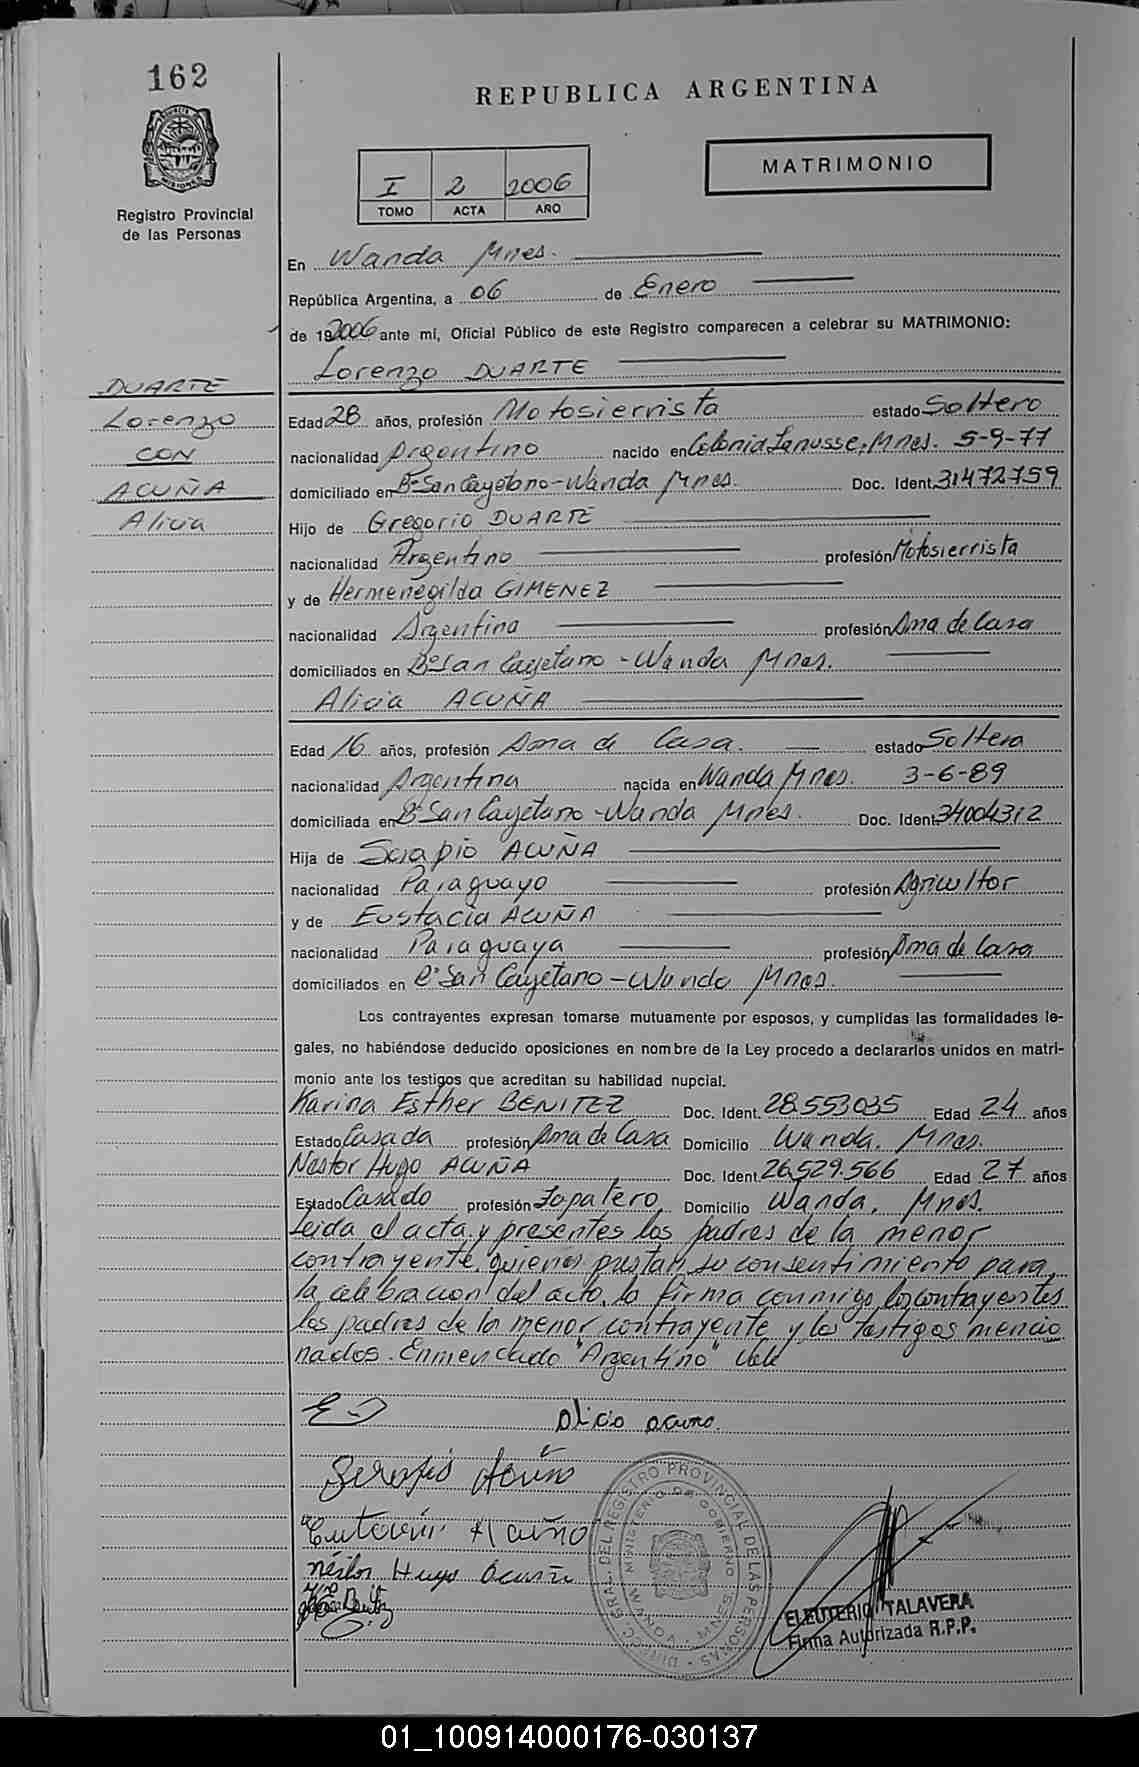 162
REPUBLICA ARGENTINA
MATRIMONIO
I 2 2006
TOMO ACTA AÑO
MISIONES
Registro Provincial
de las Personas
En Wanda Mnes.
República Argentina, a 06 de Enero
de 192006 ante mi, Oficial Público de este Registro comparecen a celebrar su MATRIMONIO:
Lorenzo DUARTE
DUARTE
Lorenzo
CON
ACUÑA
Alicia
Edad 28 años, profesión Motosierrista estado Soltero
nacionalidad Argentino nacido en Colonia Lanusse, Mnes. 5-9-77
domiciliado en Bº San Cayetano - Wanda Mnes. Doc. Ident. 31472759
Hijo de Gregorio DUARTE
nacionalidad Argentino profesión Motosierrista
y de Hermenegilda GIMENEZ
nacionalidad Argentina profesión Ama de Casa
domiciliados en Bº San Cayetano - Wanda Mnes.
Alicia ACUÑA
Edad 16 años, profesión Ama de Casa. estado Soltera
nacionalidad Argentina nacida en Wanda Mnes. 3-6-89
domiciliada en Bº San Cayetano - Wanda Mnes. Doc. Ident. 34004312
Hija de Serapio ACUÑA
nacionalidad Paraguayo profesión Agricultor
y de Eustacia ACUÑA
nacionalidad Paraguaya profesión Ama de Casa
domiciliados en Bº San Cayetano - Wanda Mnes.
Los contrayentes expresan tomarse mutuamente por esposos, y cumplidas las formalidades le-
gales, no habiéndose deducido oposiciones en nombre de la Ley procedo a declararlos unidos en matri-
monio ante los testigos que acreditan su habilidad nupcial.
Karina Esther BENITEZ Doc. Ident. 28.553035 Edad 24 años
Estado Casada profesión Ama de Casa Domicilio Wanda, Mnes.
Nestor Hugo ACUÑA Doc. Ident. 26,529.566 Edad 27 años
Estado Casado profesión Zapatero Domicilio Wanda, Mnes.
Leida el acta y presentes los padres de la menor
contrayente, quienes prestan su consentimiento para
la celebracion del acto, la firma conmigo, los contrayentes
los padres de la menor contrayente y los testigos mencio
nados. Enmendado "Argentino" Vale
Alicia acuña.
Acuña
Acuña
Néstor Hugo Acuña
DIRECC. GRAL. DEL REGISTRO PROVINCIAL DE LAS PERSONAS
MINISTERIO DE GOBIERNO
ELEUTERIO TALAVERA
Firma Autorizada R.P.P.
01_100914000176-030137